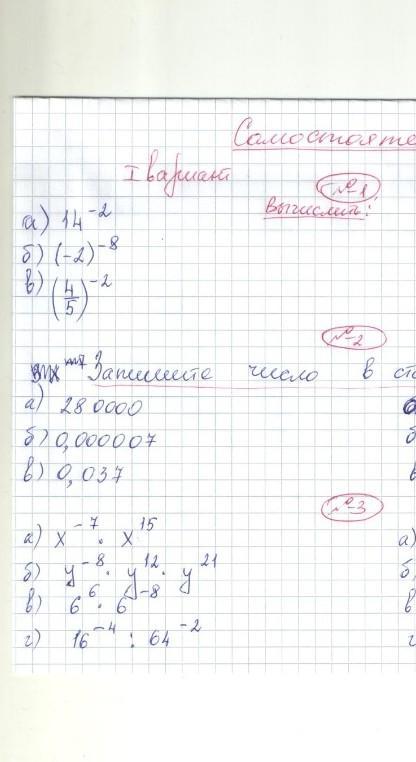 Самостояте
I вариант
№1
Вычислить:
а) 14⁻²
б) (-2)⁻⁸
в) (4/5)⁻²
№2
Запишите число в ста
а) 280000
б) 0,000007
в) 0,037
б
в
№3
а) x⁻⁷ · x¹⁵
б) y⁻⁸ · y¹² · y²¹
в) 6⁶ · 6⁻⁸
г) 16⁻⁴ : 64⁻²
а)
б,
в
г